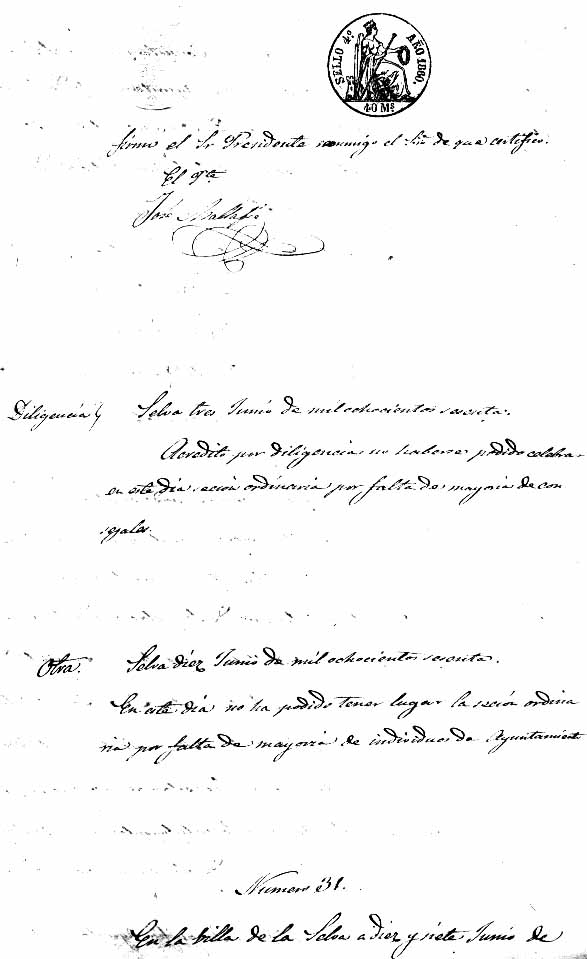 SELLO 4º AÑO 1860.
40 Mˢ
firma el Sr Presidente conmigo el Srio de que certifico.
El Pte
José
Diligencia Selva tres Junio de mil ochocientos sesenta.
Acredito por diligencia no haberse podido celebrar
en este dia seción ordinaria por falta de mayoria de con
sejales.
Otra. Selva diez Junio de mil ochocientos sesenta.
En este dia no ha podido tener lugar la seción ordina
ria por falta de mayoria de individuos de Ayuntamient
Numero 31.
En la Villa de la Selva a diez y siete Junio de